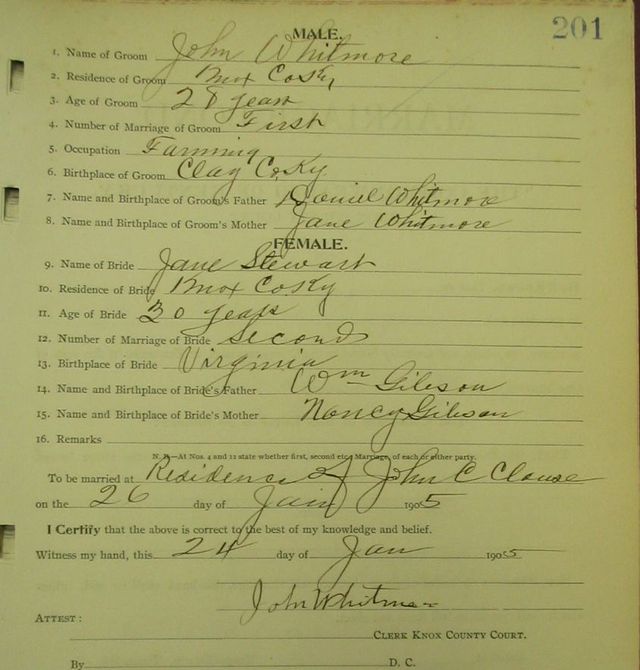 201
MALE.
1. Name of Groom John Whitmore
2. Residence of Groom Knox Co Ky
3. Age of Groom 28 years
4. Number of Marriage of Groom First
5. Occupation Farming
6. Birthplace of Groom Clay Co. Ky
7. Name and Birthplace of Groom's Father Daniel Whitmore
8. Name and Birthplace of Groom's Mother Jane Whitmore
FEMALE.
9. Name of Bride Jane Stewart
10. Residence of Bride Knox Co Ky
11. Age of Bride 30 years
12. Number of Marriage of Bride Second
13. Birthplace of Bride Virginia
14. Name and Birthplace of Bride's Father Wm Gibson
15. Name and Birthplace of Bride's Mother Nancy Gibson
16. Remarks
N. B.—At Nos. 4 and 12 state whether first, second etc., Marriage, of each or either party.
To be married at Residence of John C Clouse
on the 26 day of Jany 1905
I Certify that the above is correct to the best of my knowledge and belief.
Witness my hand, this 24 day of Jan 1905
John Whitmore
ATTEST:
CLERK KNOX COUNTY COURT.
By D. C.